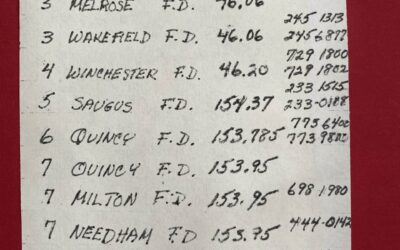 3 MELROSE F.D. 46.06
245 1313
3 WAKEFIELD F.D. 46.06 245 6877
729 1800
4 WINCHESTER F.D. 46.20 729 1802
233 1515
5 SAUGUS F.D. 154.37 233-0188
773 6400
6 QUINCY F.D. 153.785 773 9802
7 QUINCY F.D. 153.95
7 MILTON F.D. 153.95 698 1980
7 NEEDHAM F.D 153.75 444-0142